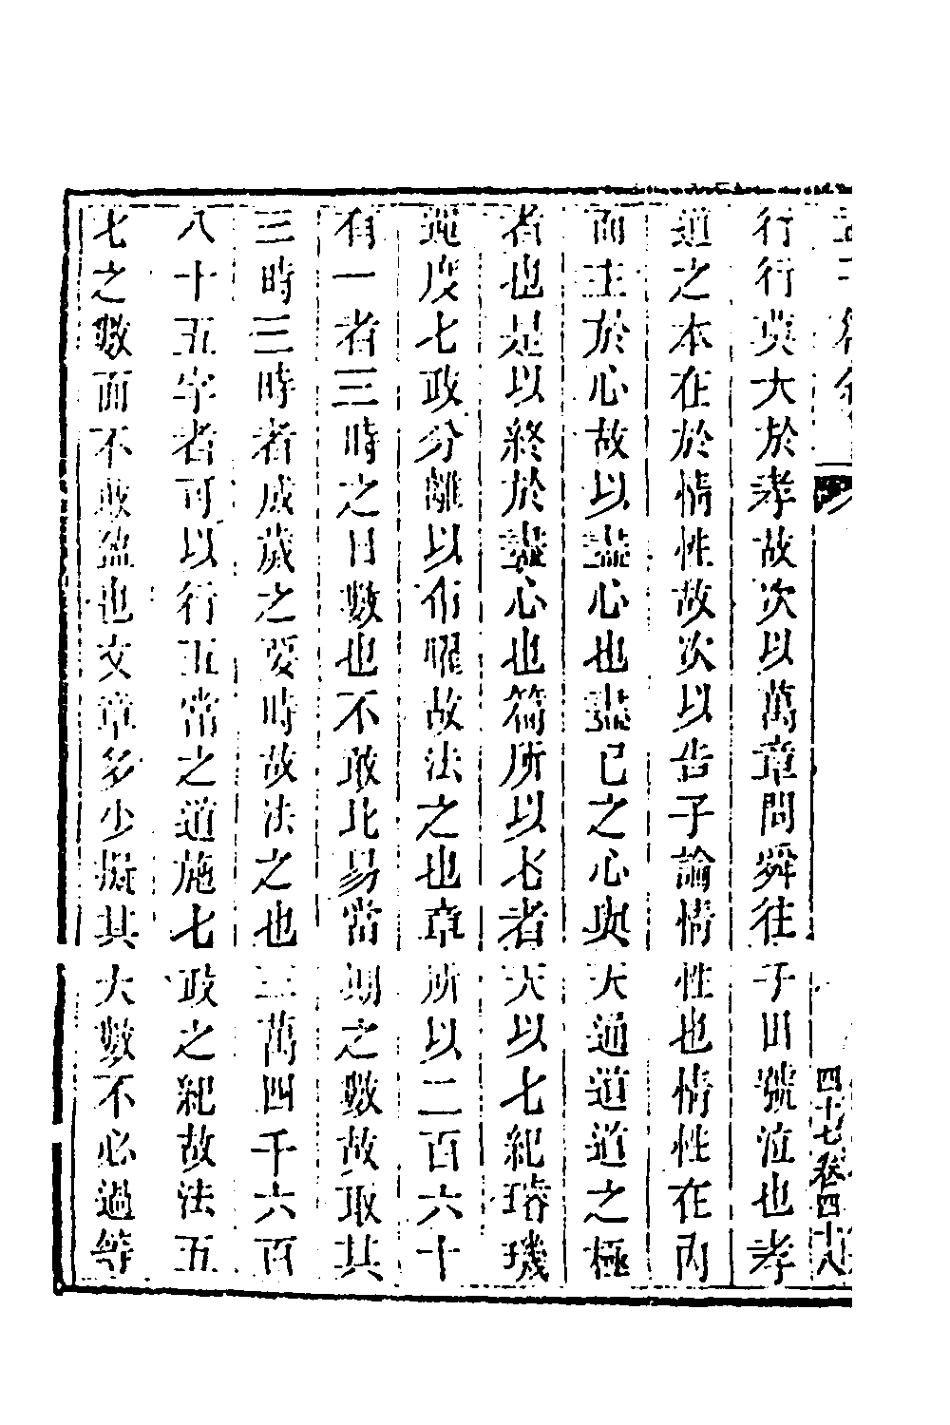 行行莫大於孝故次以萬章問舜往于田號泣也孝
道之本在於情性故次以告子論情性也情性在内
而主於心故以盡心也盡己之心與天通道道之極
者也是以終於盡心也篇所以七者天以七紀璿璣
運度七政分離以布曜故法之也章所以二百六十
有一者三時之日數也不敢比易當期之數故取其
三時三時者成歲之要時故法之也三萬四千六百
八十五字者可以行五常之道施七政之紀故法五
七之數而不敢盈也文章多少擬其大數不必適等
四十七卷四 十八